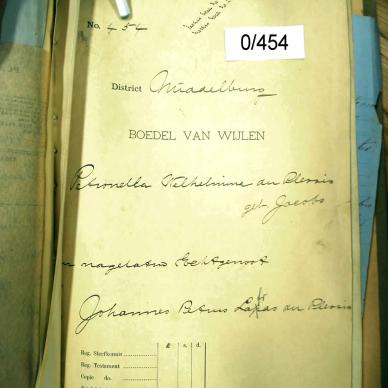 No. 454
0/454
District Middelburg
BOEDEL VAN WIJLEN
Petronella Wilhelmina du Plessis
geb. Jacobs
en nagelaten Echtgenoot
Johannes Petrus Lafras du Plessis
£ s. d.
Reg. Sterfkennis
Reg. Testament
Copie do.